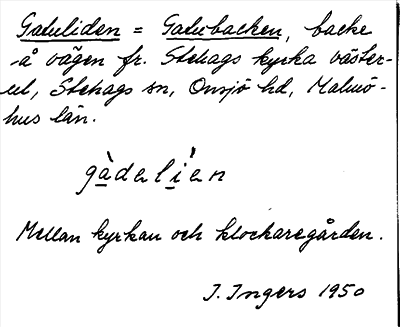 Gatuliden = Gatubacken, backe
å vägen fr. Stehags kyrka väster-
ut, Stehags sn, Onsjö hd, Malmö-
hus län.
gàdelíen
Mellan kyrkan och klockaregården.
I. Ingers 1950